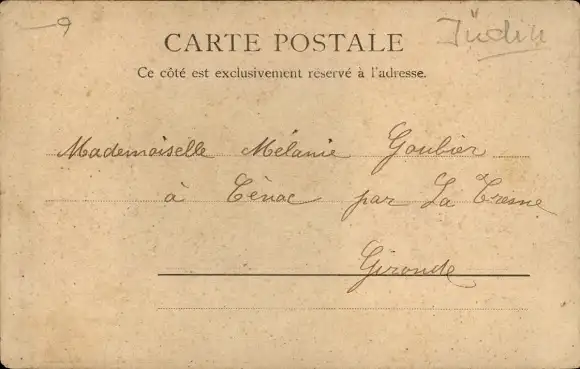 9
Jüdin
CARTE POSTALE
Ce côté est exclusivement réservé à l'adresse.
Mademoiselle Mélanie Goubier
à Cénac par La Tresne
Gironde